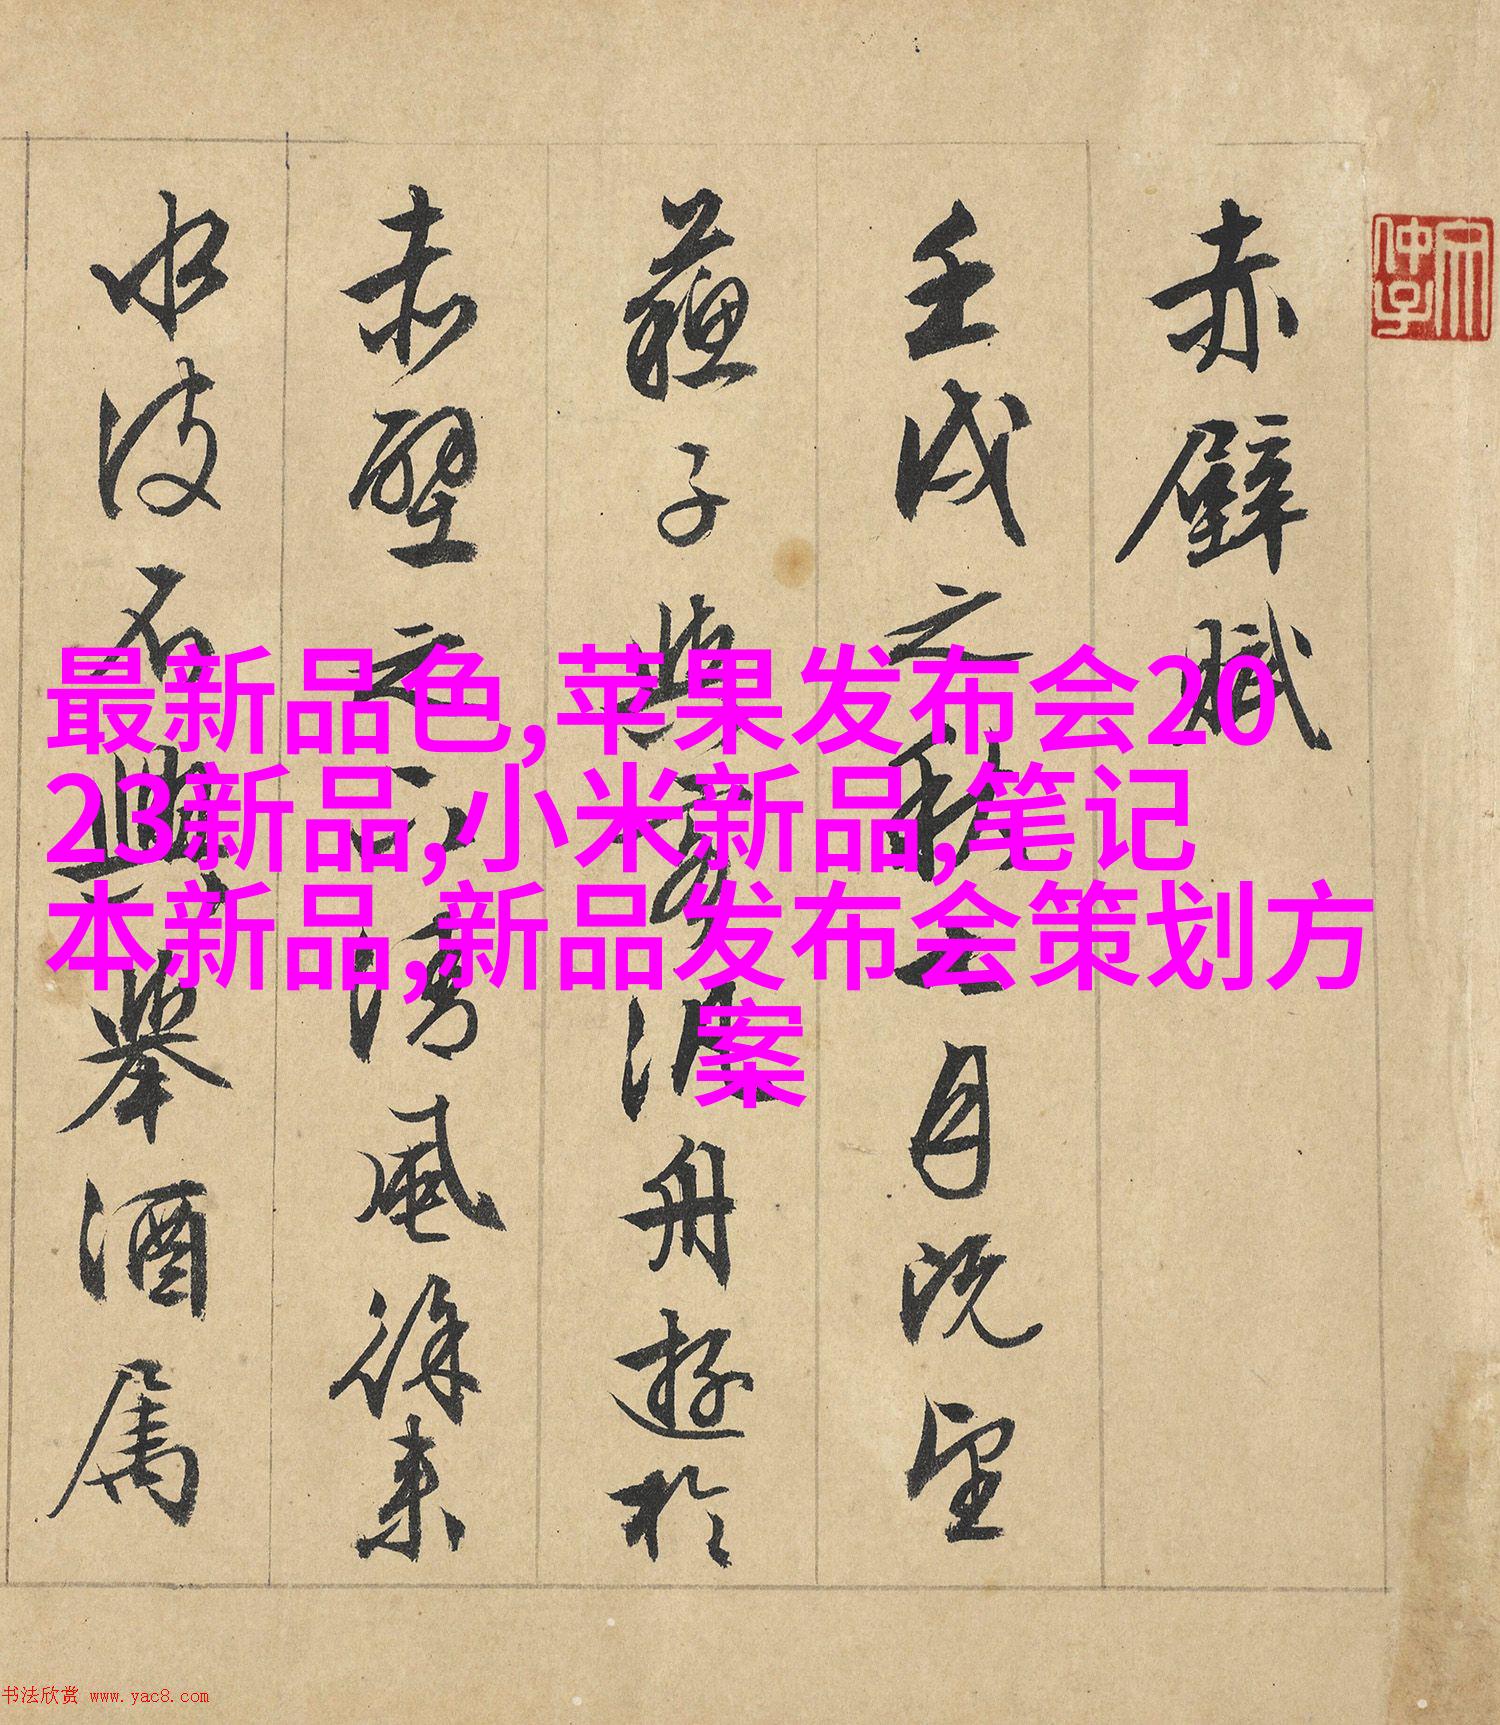 赤壁賦
壬戌之秋七月既望
蘇子與客汎舟遊於
赤壁之下清風徐來
水波不興舉酒屬
最新品色,苹果发布会20
23新品,小米新品,笔记
本新品,新品发布会策划方
案
书法欣赏 www.yac8.com